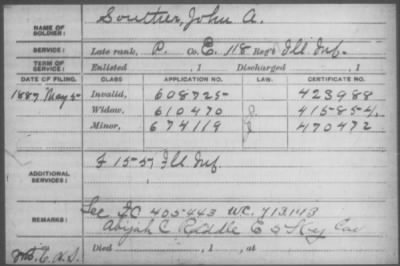 NAME OF SOLDIER: Souther, John A.
SERVICE: Late rank, P. Co. E, 118 Reg't Ill Inf.
TERM OF SERVICE: Enlisted , 1 Discharged , 1
DATE OF FILING. CLASS. APPLICATION NO. LAW. CERTIFICATE NO.
1887 May 5 Invalid, 608725 423988
Widow, 610470 415854
Minor, 674119 470472
ADDITIONAL SERVICES: F 15-57 Ill Inf.
REMARKS: See 405443 W.C. 713143
Abijah C Riddle E 5 Ky Cav
Died , 1 , at